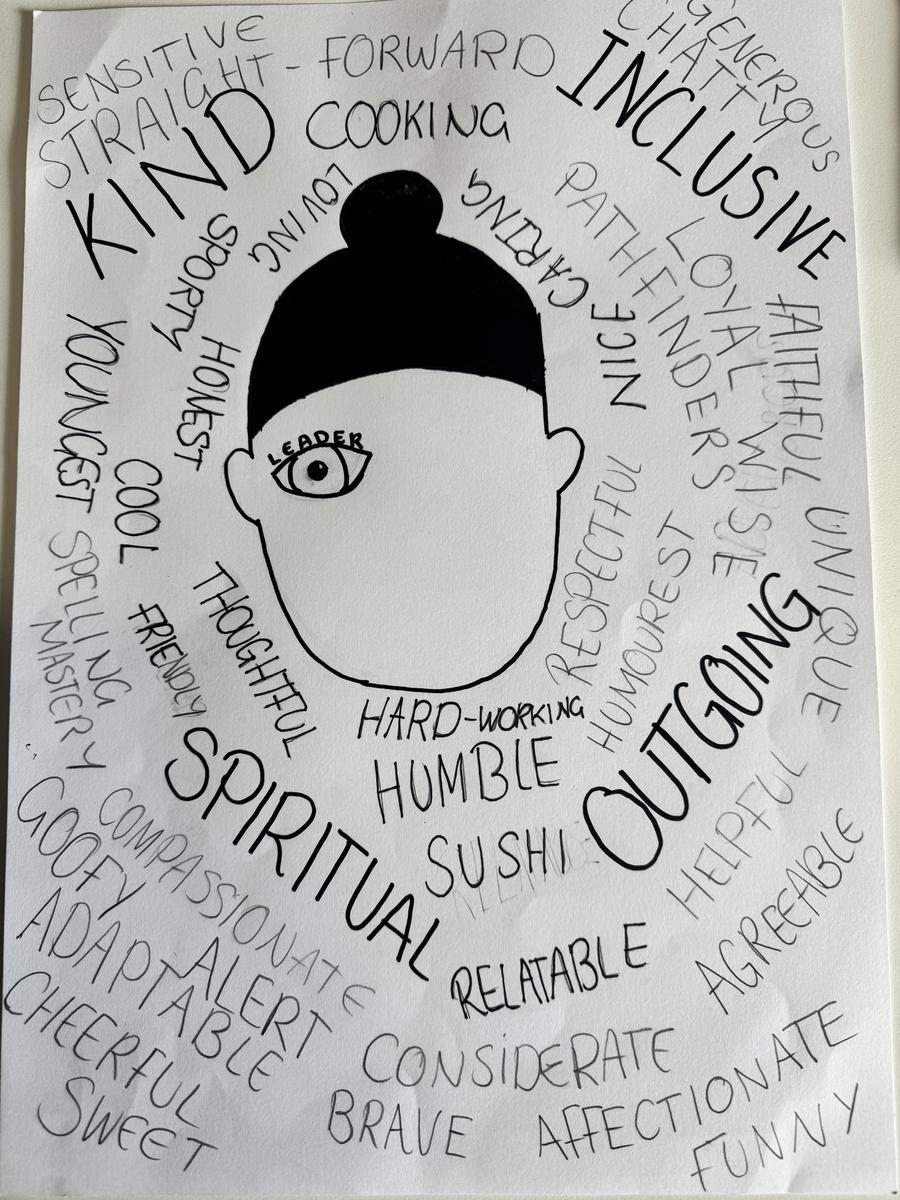 SENSITIVE
STRAIGHT-FORWARD
GENEROUS
CHATTY
INCLUSIVE
KIND
COOKING
LOVING
CARING
PATHFINDERS
LOYAL
SPORTY
NICE
FAITHFUL
YOUNGEST
HONEST
LEADER
COOL
WISE
RESPECTFUL
UNIQUE
SPELLING
MASTERY
THOUGHTFUL
FRIENDLY
HUMOUREST
OUTGOING
HARD-WORKING
HUMBLE
SPIRITUAL
SUSHI
HELPFUL
GOOFY
COMPASSIONATE
AGREEABLE
ADAPTABLE
ALERT
RELATABLE
CHEERFUL
CONSIDERATE
SWEET
BRAVE
AFFECTIONATE
FUNNY